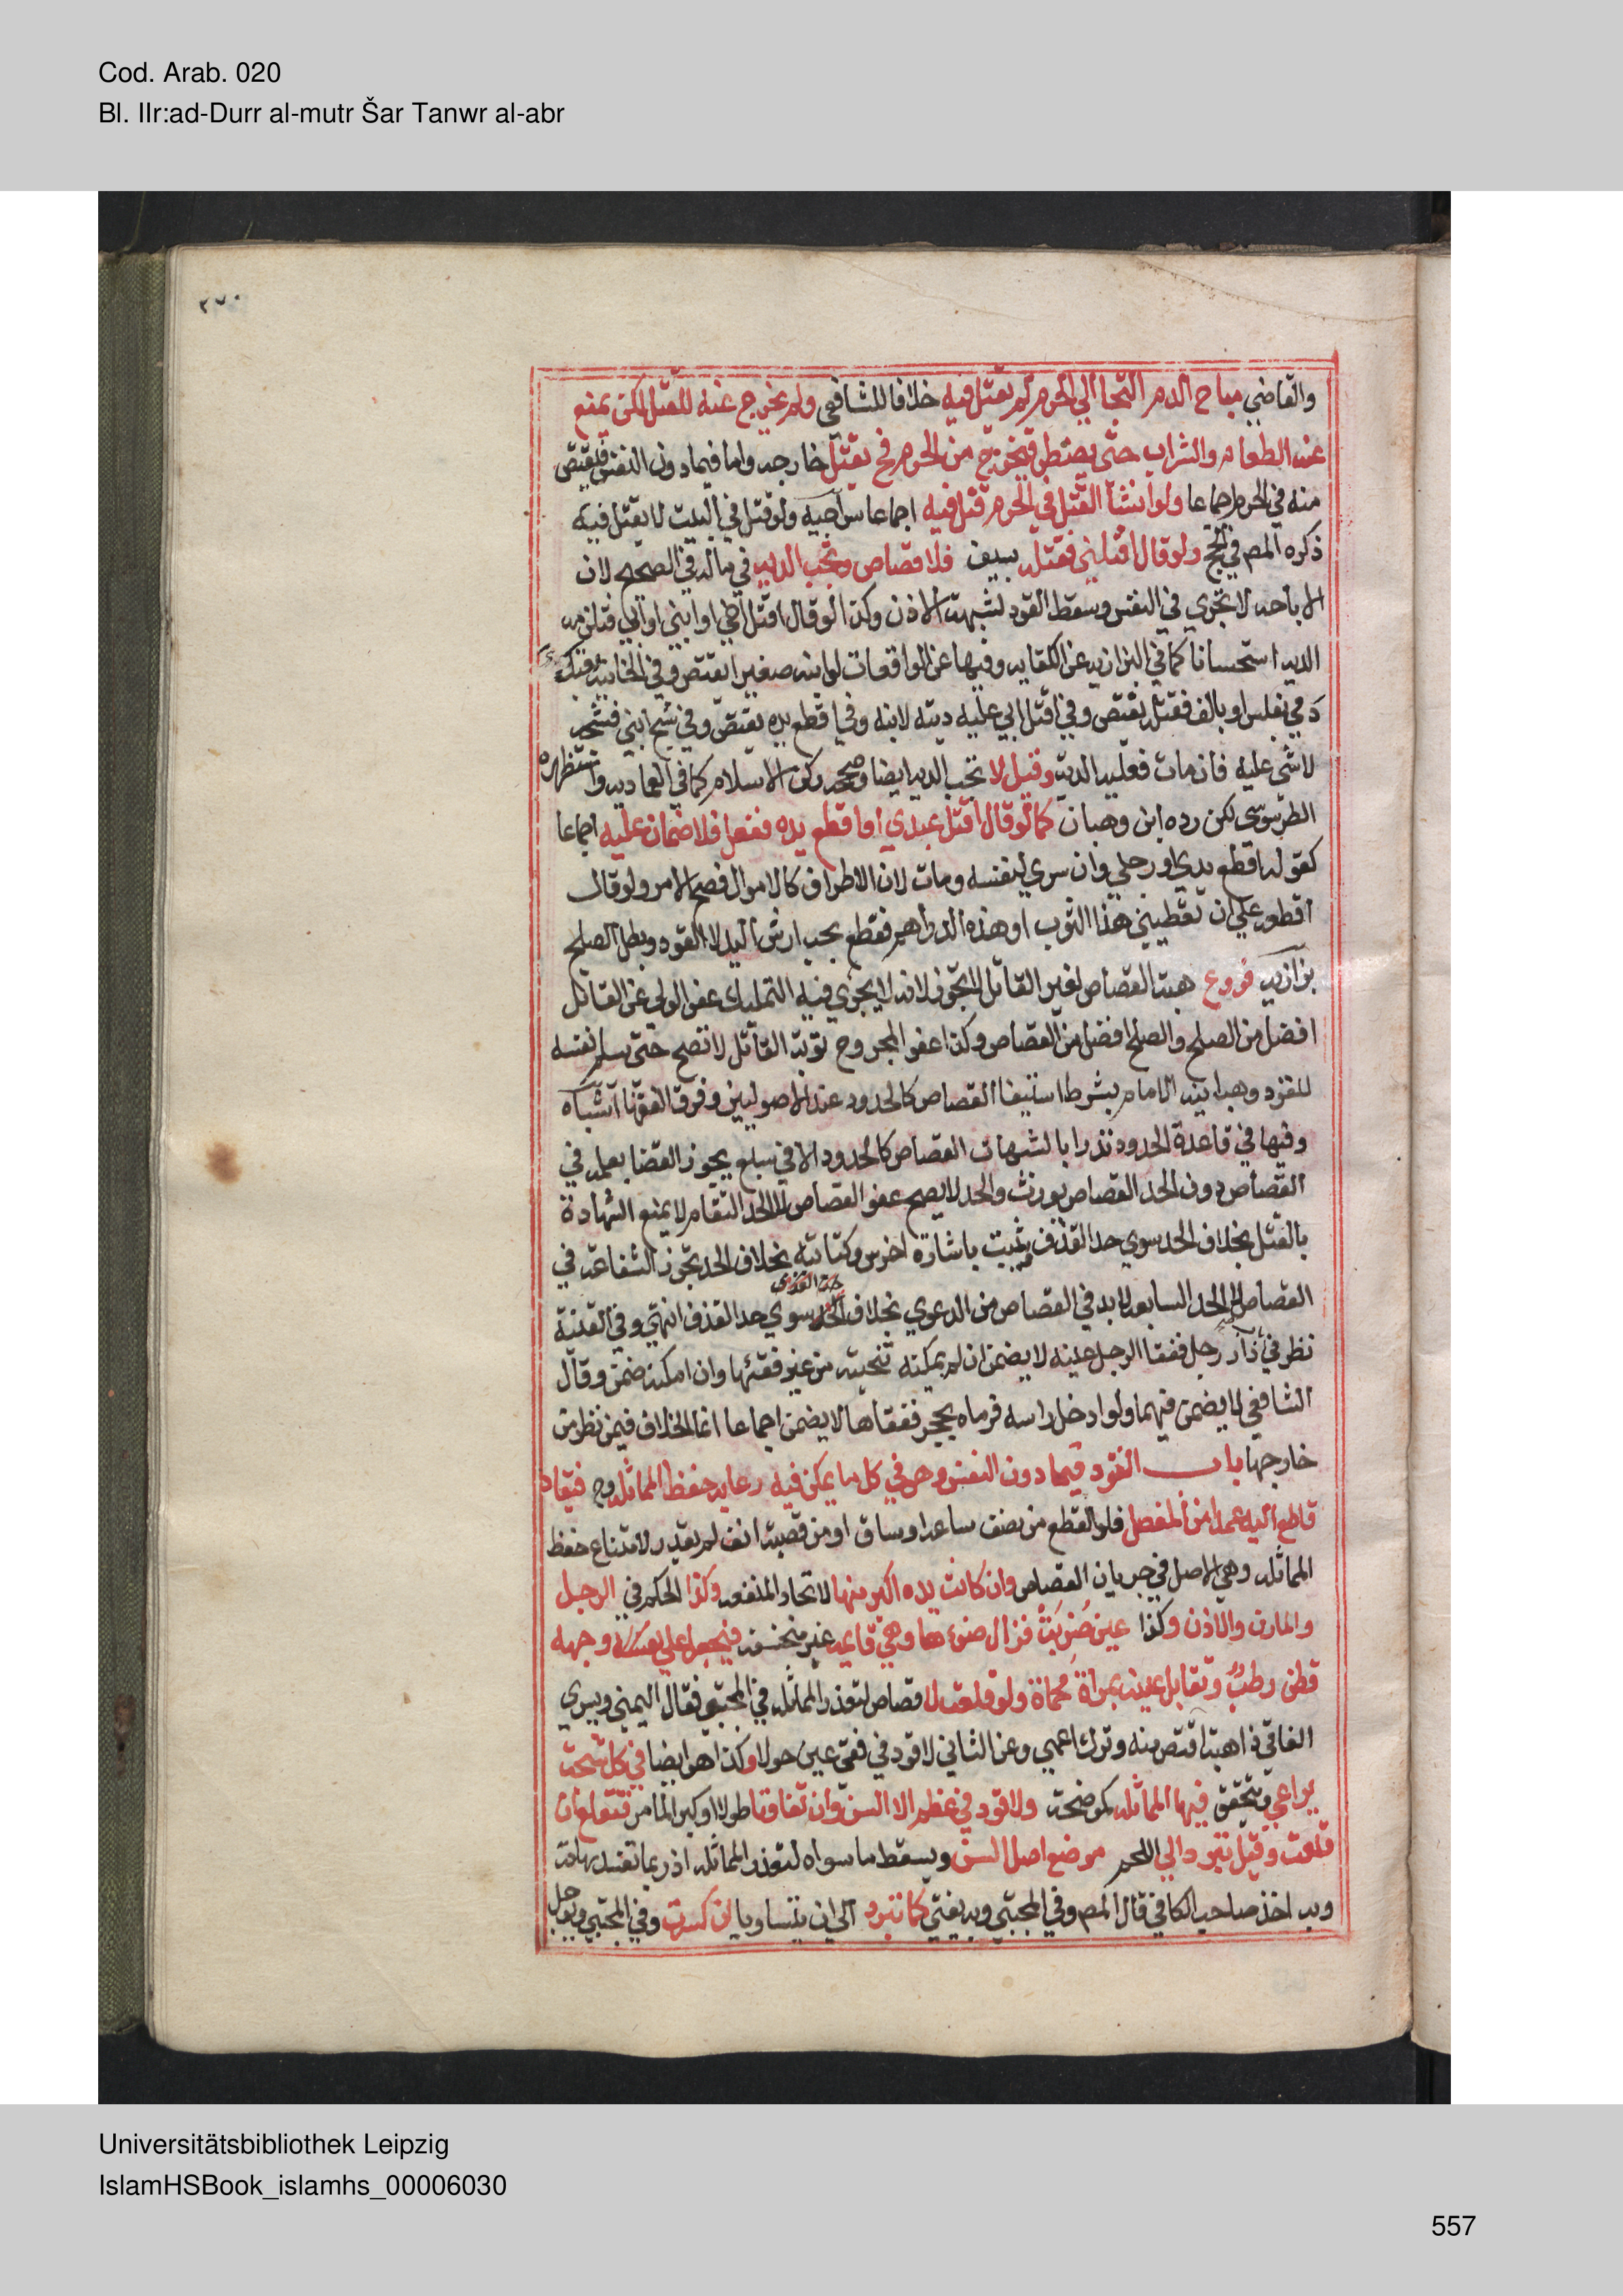 Cod. Arab. 020
Bl. IIr:ad-Durr al-mutr Šar Tanwr al-abr
٢٧٠
والقاضي مباح الدم التجا الي الحرم لم يقتل فيه خلافا للشافعي ولم يخرج عنه للقتل لكن يمنع
عنه الطعام والشراب حتى يضطر فيخرج من الحرم فح يقتل خارجه واما فيما دون النفس فيقتص
منه في الحرم اجماعا ولو انشأ القتل في الحرم قتل فيه اجماعا سراجيه ولو قتل في البيت لا يقتل فيه
ذكره المص في الحج ولو قال اقتلني فقتله بسيف فلا قصاص وتجب الديه في ماله في الصحيح لان
الاباحه لا تجري في النفس وسقط القود لشبهة الاذن وكذا لو قال اقتل اخي او ابني او ابي فتلزمه
الديه استحسانا كما في البزازيه عن الكفايه وفيها عن الواقعات لو ابنه صغيرا يقتص وفي الخانيه بعتك
دمي بفلس او بالف فقتله يقتص وفي اقتل ابي عليه ديته لابنه وفي اقطع يده يقتص وفي شج ابني فشجه
لا شي عليه فان مات فعليه الدية وقيل لا تجب الديه ايضا وصححه ركن الاسلام كما في العماديه واستظهره
الطرسوسي لكن رده ابن وهبان كما لو قال اقتل عبدي او اقطع يده ففعل فلا ضمان عليه اجماعا
كقوله اقطع يدي او رجلي وان سري لنفسه ومات لان الاطراف كالاموال فصح الامر ولو قال
اقطعه علي ان تعطيني هذا الثوب او هذه الدراهم فقطع يجب ارش اليد لا القود وبطل الصلح
بزازيه فروع هبة القصاص لغير القاتل لا تجوز لانه لا يجري فيه التمليك عفو الولي عن القاتل
افضل من الصلح والصلح افضل من القصاص وكذا عفو المجروح توبة القاتل لا تصح حتى يسلم نفسه
للقود وهبانيه الامام بشرط استيفا القصاص كالحدود عند الاصوليين وفرق الفقها اشباه
وفيها في قاعدة الحدود تدرا بالشبهات القصاص كالحدود الا في سبع يجوز القضا بعلمه في
القصاص دون الحد القصاص يورث والحد لا يصح عفو القصاص لا الحد التقادم لا يمنع الشهادة
بالقتل بخلاف الحد سوي حد القذف ويثبت باشارة اخرس وكتابته بخلاف الحد تجوز الشفاعة في
القصاص لا الحد السابعه لا بد في القصاص من الدعوي بخلاف الحد سوي حد القذف انتهي وفي القنية
نظر في دار رجل ففقا الرجل عينه لا يضمن ان لم يمكنه تنحيته من غير فقئها وان امكنه ضمن وقال
الشافعي لا يضمن فيهما ولو ادخل راسه فرماه بحجر ففقاها لا يضمن اجماعا انما الخلاف فيمن نظر من
خارجها باب القود فيما دون النفس وهو في كل ما يمكن فيه رعايه حفظ المماثله وح فيقاد
قاطع اليد عمدا من المفصل فلو القطع من نصف ساعد او ساق او من قصبة انف لم يقد لامتناع حفظ
المماثله وهي الاصل في جريان القصاص وان كانت يده اكبر منها لاتحاد المنفعه وكذا الحكم في الرجل
والمارن والاذن وكذا عين ضربت فزال ضوءها وهي قايمه غير منخسفه فيجعل علي وجهه
قطن رطب وتقابل عينه بمراة محماة ولو قلعت لا قصاص لتعذر المماثله في المجتبي فقا اليمني ويسري
الفاقي ذاهبة اقتص منه وترك اعمي وعن الثاني لا قود في فقئ عين حولا وكذا هو ايضا في كل شجة
يراعي وتتحقق فيها المماثله كموضحة ولا قود في عظم الا السن وان تفاوتا طولا او كبرا لما مر فتقلع ان
قلعت وقيل تبرد الي اللحم موضع اصل السن ويسقط ما سواه لتعذر المماثله اذ ربما تفسد لهاته
وبه اخذ صاحب الكافي قال المص وفي المجتبي وبه يفتي كما تبرد الي ان يتساويا ان كسرت وفي المجتبي ويوجل
Universitätsbibliothek Leipzig
IslamHSBook_islamhs_00006030
557